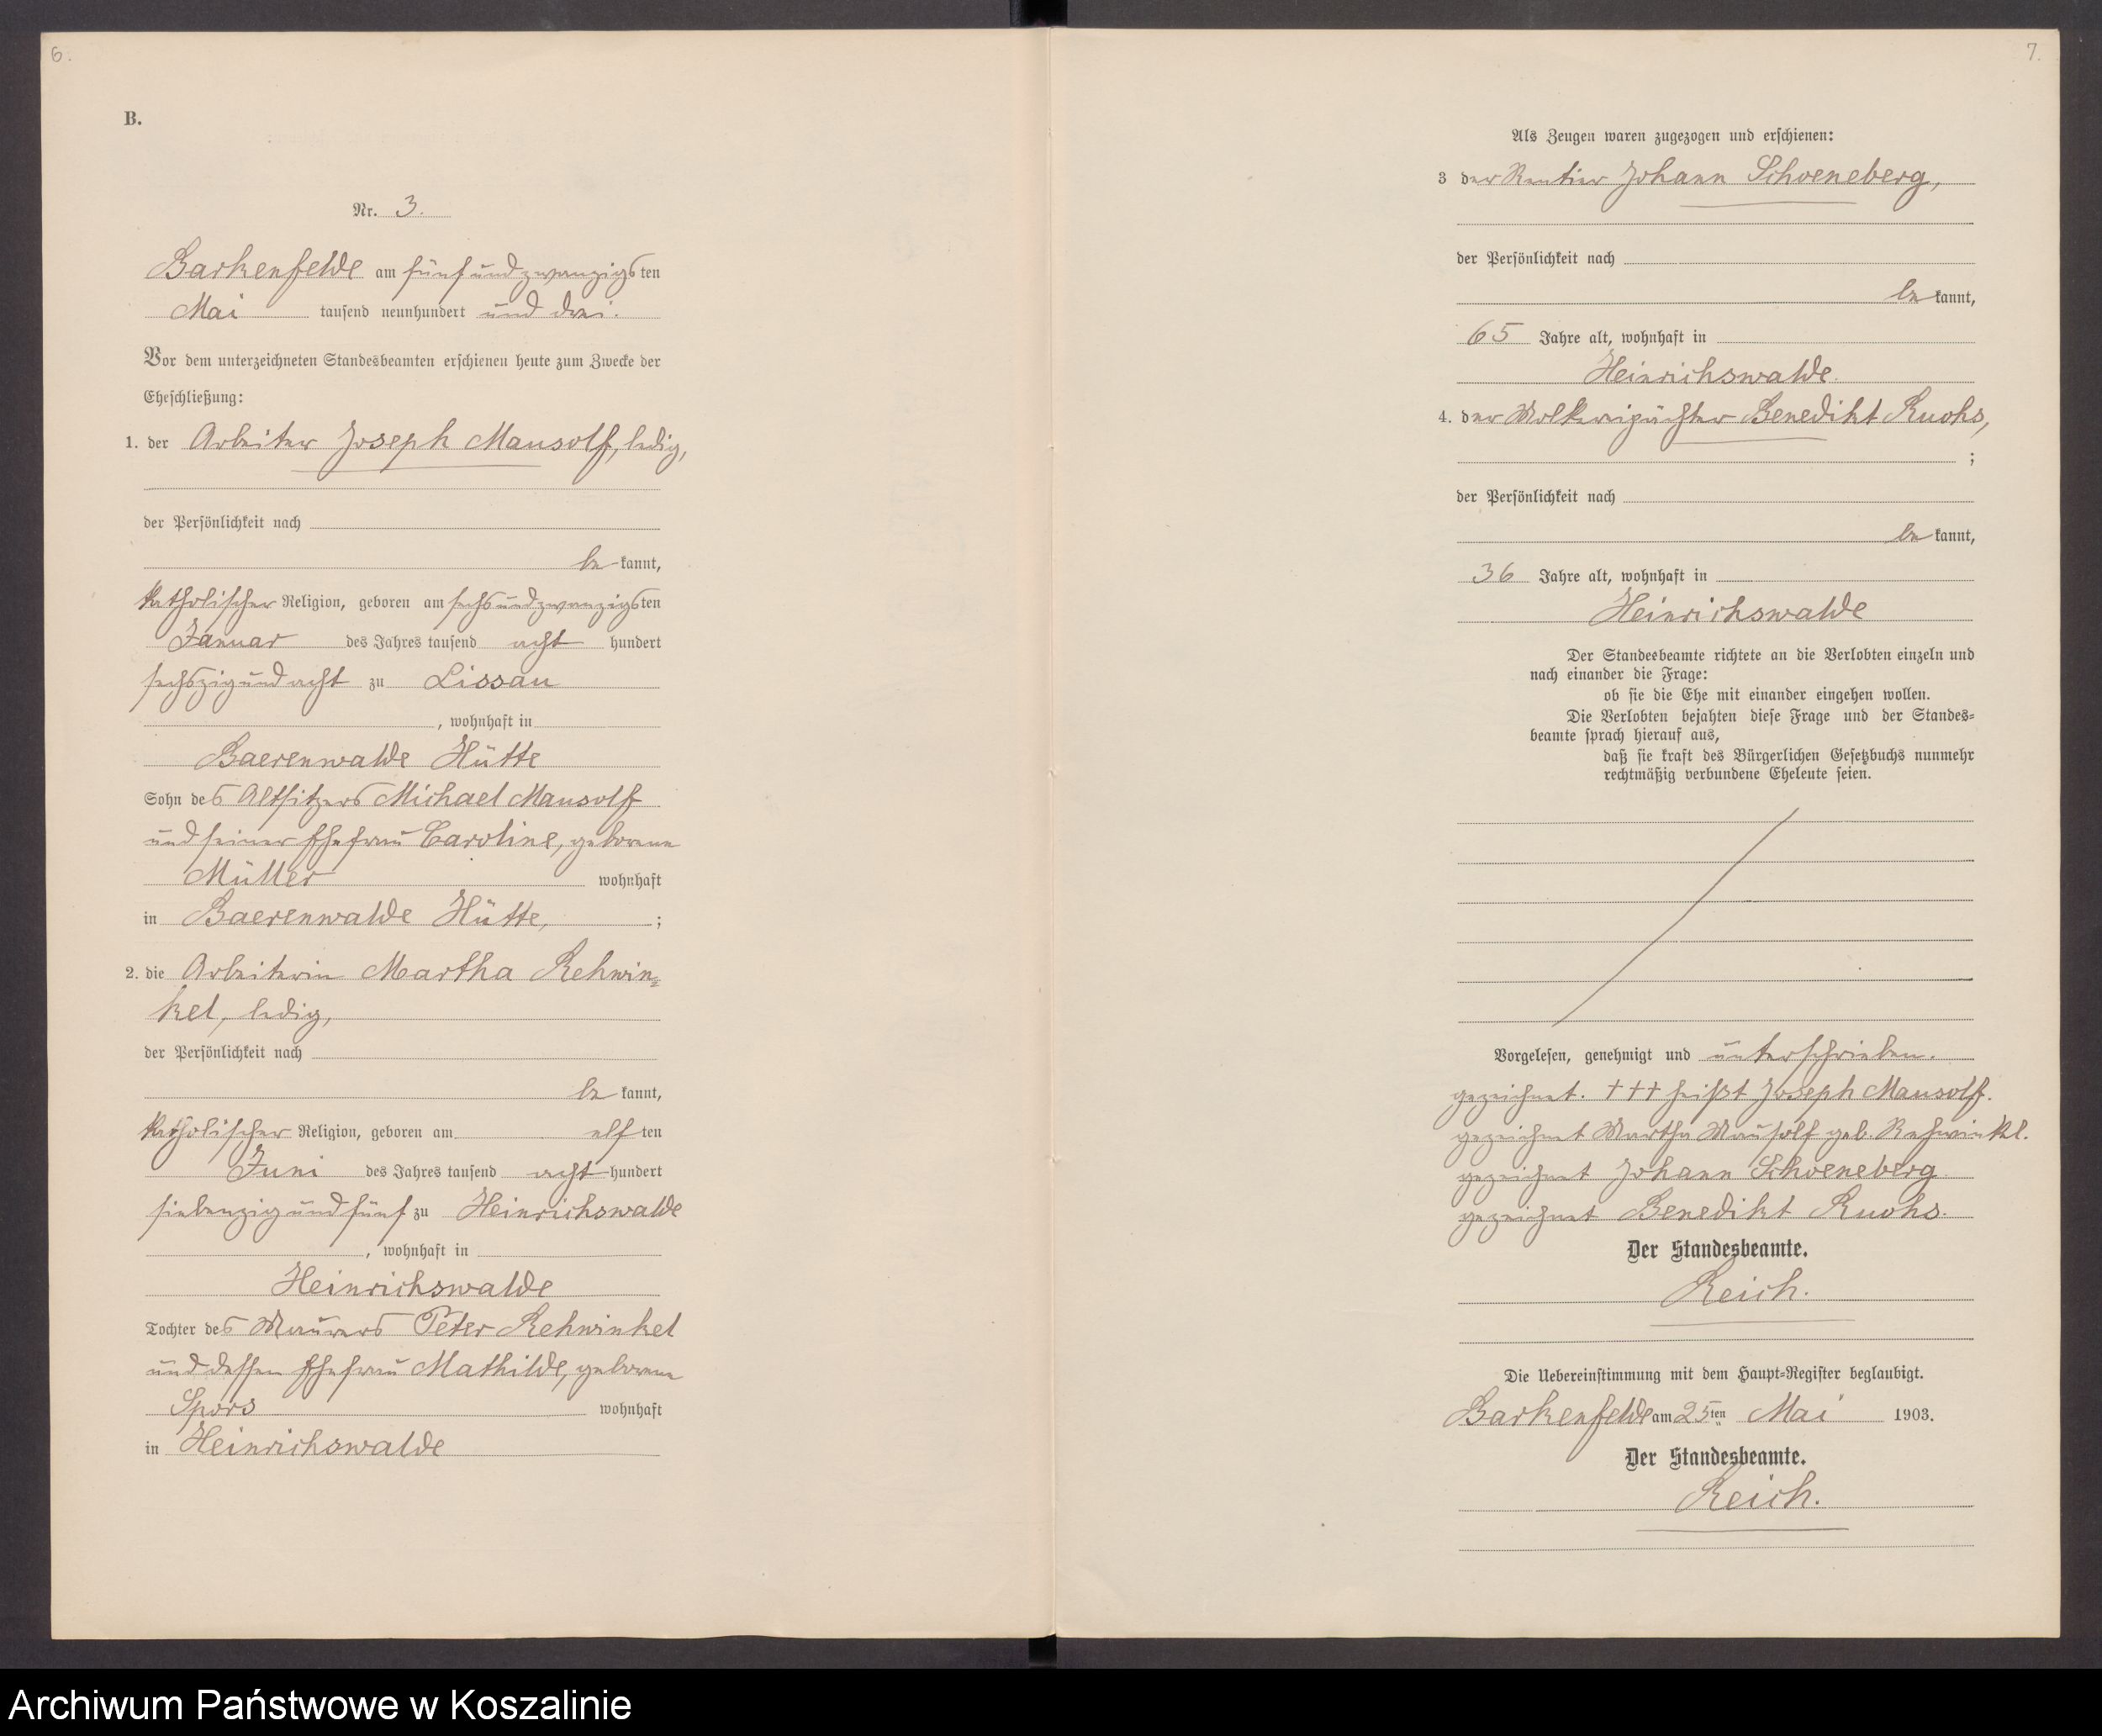 6.
B.
Nr. 3.
Barkenfelde am fünfundzwanzigsten
Mai tausend neunhundert und drei.
Vor dem unterzeichneten Standesbeamten erschienen heute zum Zwecke der
Eheschließung:
1. der Arbeiter Joseph Mausolf, ledig,
der Persönlichkeit nach
be kannt,
katholischer Religion, geboren am sechsundzwanzigsten
Januar des Jahres tausend acht hundert
sechszigundacht zu Lissau
, wohnhaft in
Baerenwalde Hütte
Sohn des Altsitzers Michael Mausolf
und seiner Ehefrau Caroline, geborene
Müller wohnhaft
in Baerenwalde Hütte, ;
2. die Arbeiterin Martha Rehwin=
kel, ledig,
der Persönlichkeit nach
be kannt,
katholischer Religion, geboren am elf ten
Juni des Jahres tausend acht hundert
siebenzigundfünf zu Heinrichswalde
, wohnhaft in
Heinrichswalde
Tochter des Maurers Peter Rehwinkel
und dessen Ehefrau Mathilde, geborene
Spors wohnhaft
in Heinrichswalde
7.
Als Zeugen waren zugezogen und erschienen:
3 der Rentier Johann Schoeneberg,
der Persönlichkeit nach
be kannt,
65 Jahre alt, wohnhaft in
Heinrichswalde.
4. der Molkereipächter Benedikt Ruohs,
;
der Persönlichkeit nach
be kannt,
36 Jahre alt, wohnhaft in
Heinrichswalde
Der Standesbeamte richtete an die Verlobten einzeln und
nach einander die Frage:
ob sie die Ehe mit einander eingehen wollen.
Die Verlobten bejahten diese Frage und der Standes=
beamte sprach hierauf aus,
daß sie kraft des Bürgerlichen Gesetzbuchs nunmehr
rechtmäßig verbundene Eheleute seien.
Vorgelesen, genehmigt und unterschrieben.
gezeichnet. +++ heißt Joseph Mausolf.
gezeichnet Martha Mausolf geb. Rehwinkel.
gezeichnet Johann Schoeneberg
gezeichnet Benedikt Ruohs.
Der Standesbeamte.
Reich.
Die Uebereinstimmung mit dem Haupt=Register beglaubigt.
Barkenfelde am 25ten Mai 1903.
Der Standesbeamte.
Reich.
Archiwum Państwowe w Koszalinie